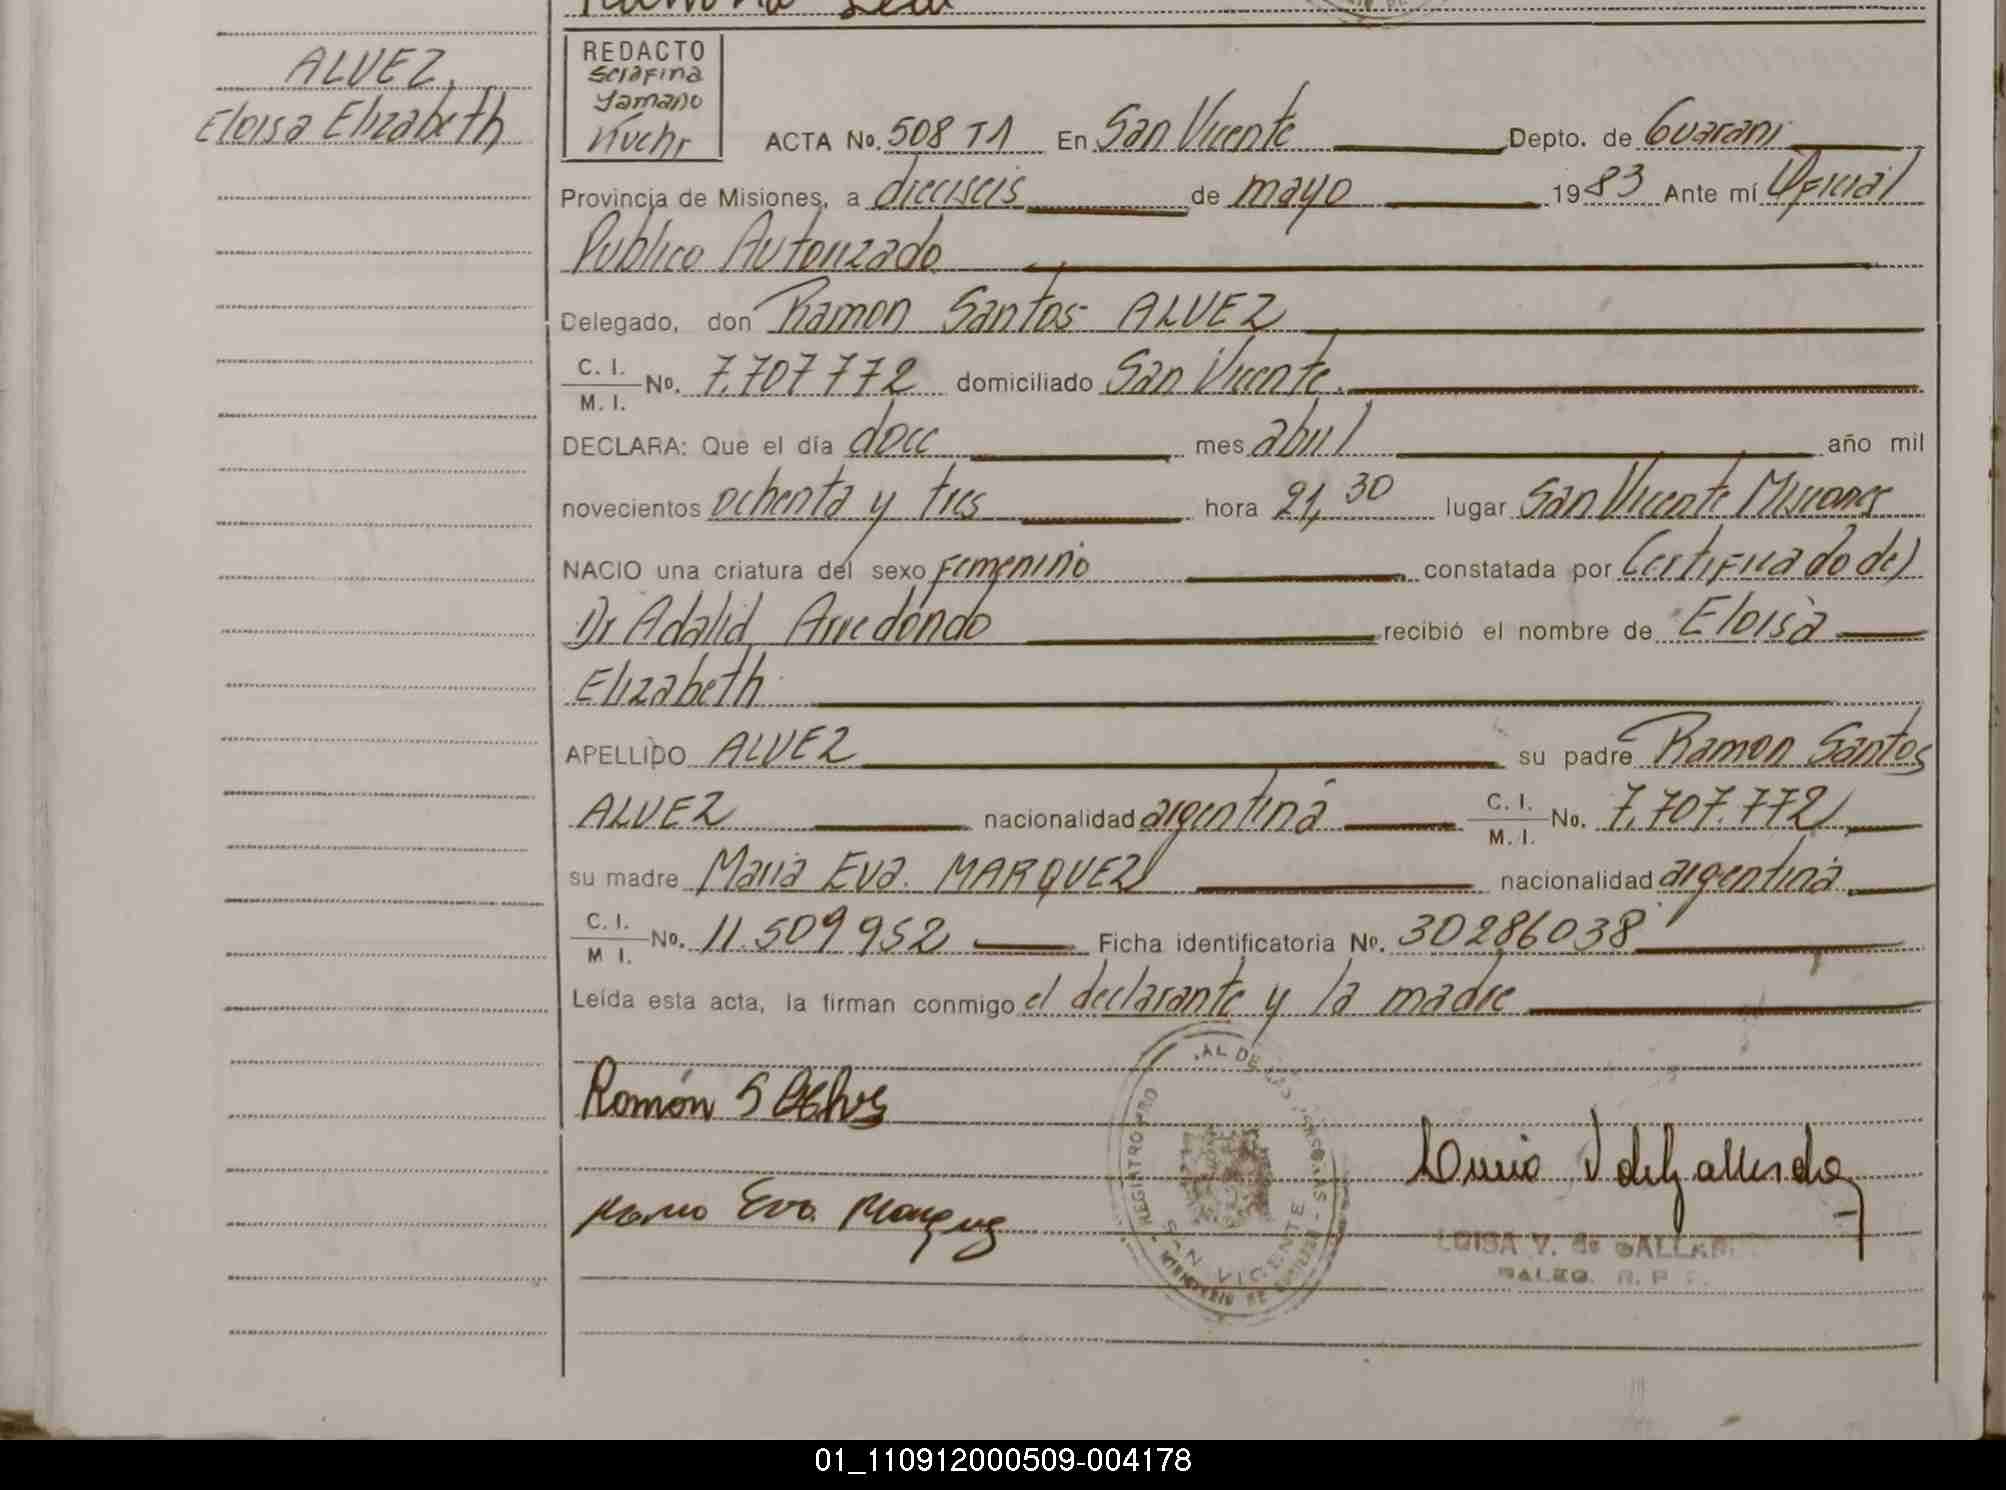 ALVEZ,
Eloisa Elizabeth
REDACTO
Serafina
Yamano
Kuchr
ACTA No. 508 T1 En San Vicente Depto. de Guarani
Provincia de Misiones, a dieciseis de mayo 1983 Ante mí Oficial
Publico Autorizado
Delegado, don Ramon Santos ALVEZ
C. I.
M. I. No. 7.707 772 domiciliado San Vicente.
DECLARA: Que el día doce mes abril año mil
novecientos ochenta y tres hora 21,30 lugar San Vicente Misiones
NACIO una criatura del sexo femenino constatada por Certificado del
Dr Adalid Arredondo recibió el nombre de Eloisa
Elizabeth
APELLIDO ALVEZ su padre Ramon Santos
ALVEZ nacionalidad argentina C. I.
M. I. No. 7.707.772
su madre Maria Eva. MARQUEZ nacionalidad argentina
C. I.
M I. No. 11.509 952 Ficha identificatoria No. 30286038
Leída esta acta, la firman conmigo el declarante y la madre
Ramón S
Maria Eva Marquez
SAN VICENTE
LUISA V. de
01_110912000509-004178